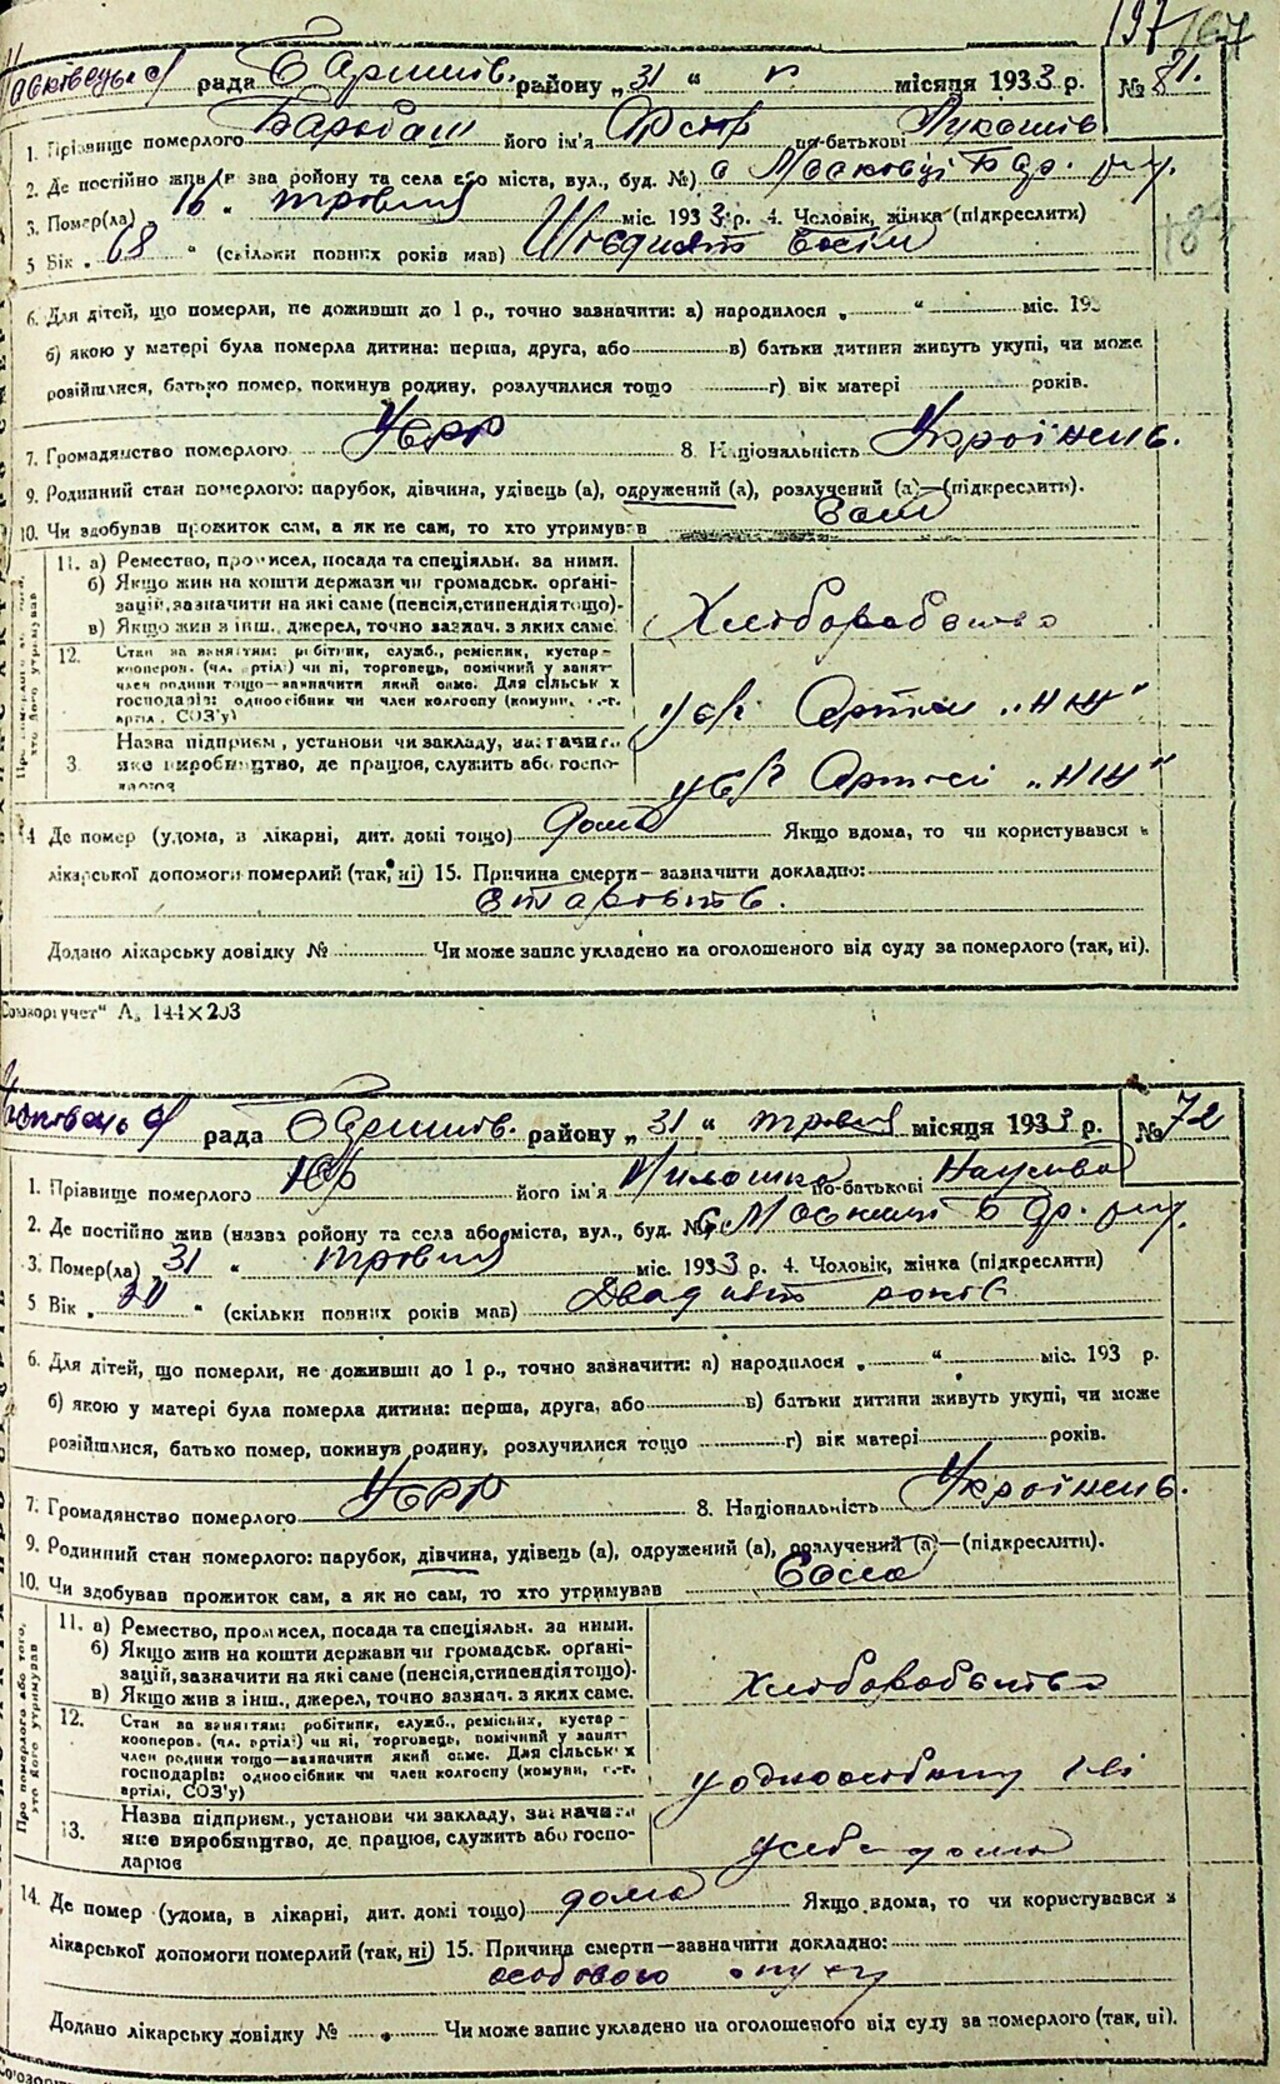 197
рада Баришів. району „31 “ місяця 1933 р. №
1. Прізвище померлого Барабаш його ім'я по-батькові Лукашів
2. Де постійно жив (н зва ройону та села або міста, вул., буд. №) с
3. Помер(ла) „16 “ травня міс. 1933 р. 4. Чоловік, жінка (підкреслити)
5 Вік „ 68 “ (скільки повних років мав) Шісдесят вісім
6. Для дітей, що померли, не доживши до 1 р., точно зазначити: а) народилося „ “ міс. 193
б) якою у матері була померла дитина: перша, друга, або в) батьки дитини живуть укупі, чи може
розійшлися, батько помер, покинув родину, розлучилися тощо г) вік матері років.
7. Громадянство померлого УСРР 8. Національність Українець.
9. Родинний стан померлого: парубок, дівчина, удівець (а), одружений (а), розлучений (а)—(підкреслити).
10. Чи здобував прожиток сам, а як не сам, то хто утримував Сам
11. а) Ремество, промисел, посада та спеціяльн. за ними.
б) Якщо жив на кошти держави чи громадськ. орґані-
зацій, зазначити на які саме (пенсія, стипендія тощо).
в) Якщо жив з інш., джерел, точно зазнач. з яких саме.
Хліборобство
12. Стан за заняттям: робітник, служб., реміспик, кустар-
кооперов. (чл. артілі) чи ні, торговець, помічний у занят-
член родини тощо—зазначити який саме. Для сільськ х
господарів: одноосібник чи член колгоспу (комуни, с.-г.
артіл, СОЗ'у)
у с/г Артілі „НЖ“
3. Назва підприєм, установи чи закладу, зазначити
яке виробництво, де працює, служить або госпо-
дарює
у с/г Артілі „НЖ“
14 Де помер (удома, в лікарні, дит. домі тощо) дома Якщо вдома, то чи користувався з
лікарської допомоги померлий (так, ні) 15. Причина смерти—зазначити докладно:
старость.
Додано лікарську довідку № Чи може запис укладено на оголошеного від суду за померлого (так, ні).
Союзоргучет“ А₅ 144×203
рада Баришів. району „31 “ травня місяця 1933 р. № 72
1. Прізвище померлого його ім'я по-батькові Наумова
2. Де постійно жив (назва ройону та села або міста, вул., буд. №) с
3. Помер(ла) „31 “ травня міс. 1933 р. 4. Чоловік, жінка (підкреслити)
5 Вік „ 20 “ (скільки повних років мав) Двадцять років
6. Для дітей, що померли, не доживши до 1 р., точно зазначити: а) народилося „ “ міс. 193 р.
б) якою у матері була померла дитина: перша, друга, або в) батьки дитини живуть укупі, чи може
розійшлися, батько помер, покинув родину, розлучилися тощо г) вік матері років.
7. Громадянство померлого УСРР 8. Національність Українець.
9. Родинний стан померлого: парубок, дівчина, удівець (а), одружений (а), розлучений (а)—(підкреслити).
10. Чи здобував прожиток сам, а як не сам, то хто утримував Сама
11. а) Ремество, промисел, посада та спеціяльн. за ними.
б) Якщо жив на кошти держави чи громадськ. орґані-
зацій, зазначити на які саме (пенсія, стипендія тощо).
в) Якщо жив з інш., джерел, точно зазнач. з яких саме.
Хліборобство
12. Стан за заняттям: робітник, служб., реміспик, кустар-
кооперов. (чл. артілі) чи ні, торговець, помічний у занят-
член родини тощо—зазначити який саме. Для сільськ х
господарів: одноосібник чи член колгоспу (комуни, с.-г.
артілі, СОЗ'у)
13. Назва підприєм., установи чи закладу, зазначити
яке виробництво, де працює, служить або госпо-
дарює
у себе дома
14. Де помер (удома, в лікарні, дит. домі тощо) дома Якщо вдома, то чи користувався з
лікарської допомоги померлий (так, ні) 15. Причина смерти—зазначити докладно:
Додано лікарську довідку № Чи може запис укладено на оголошеного від суду за померлого (так, ні).